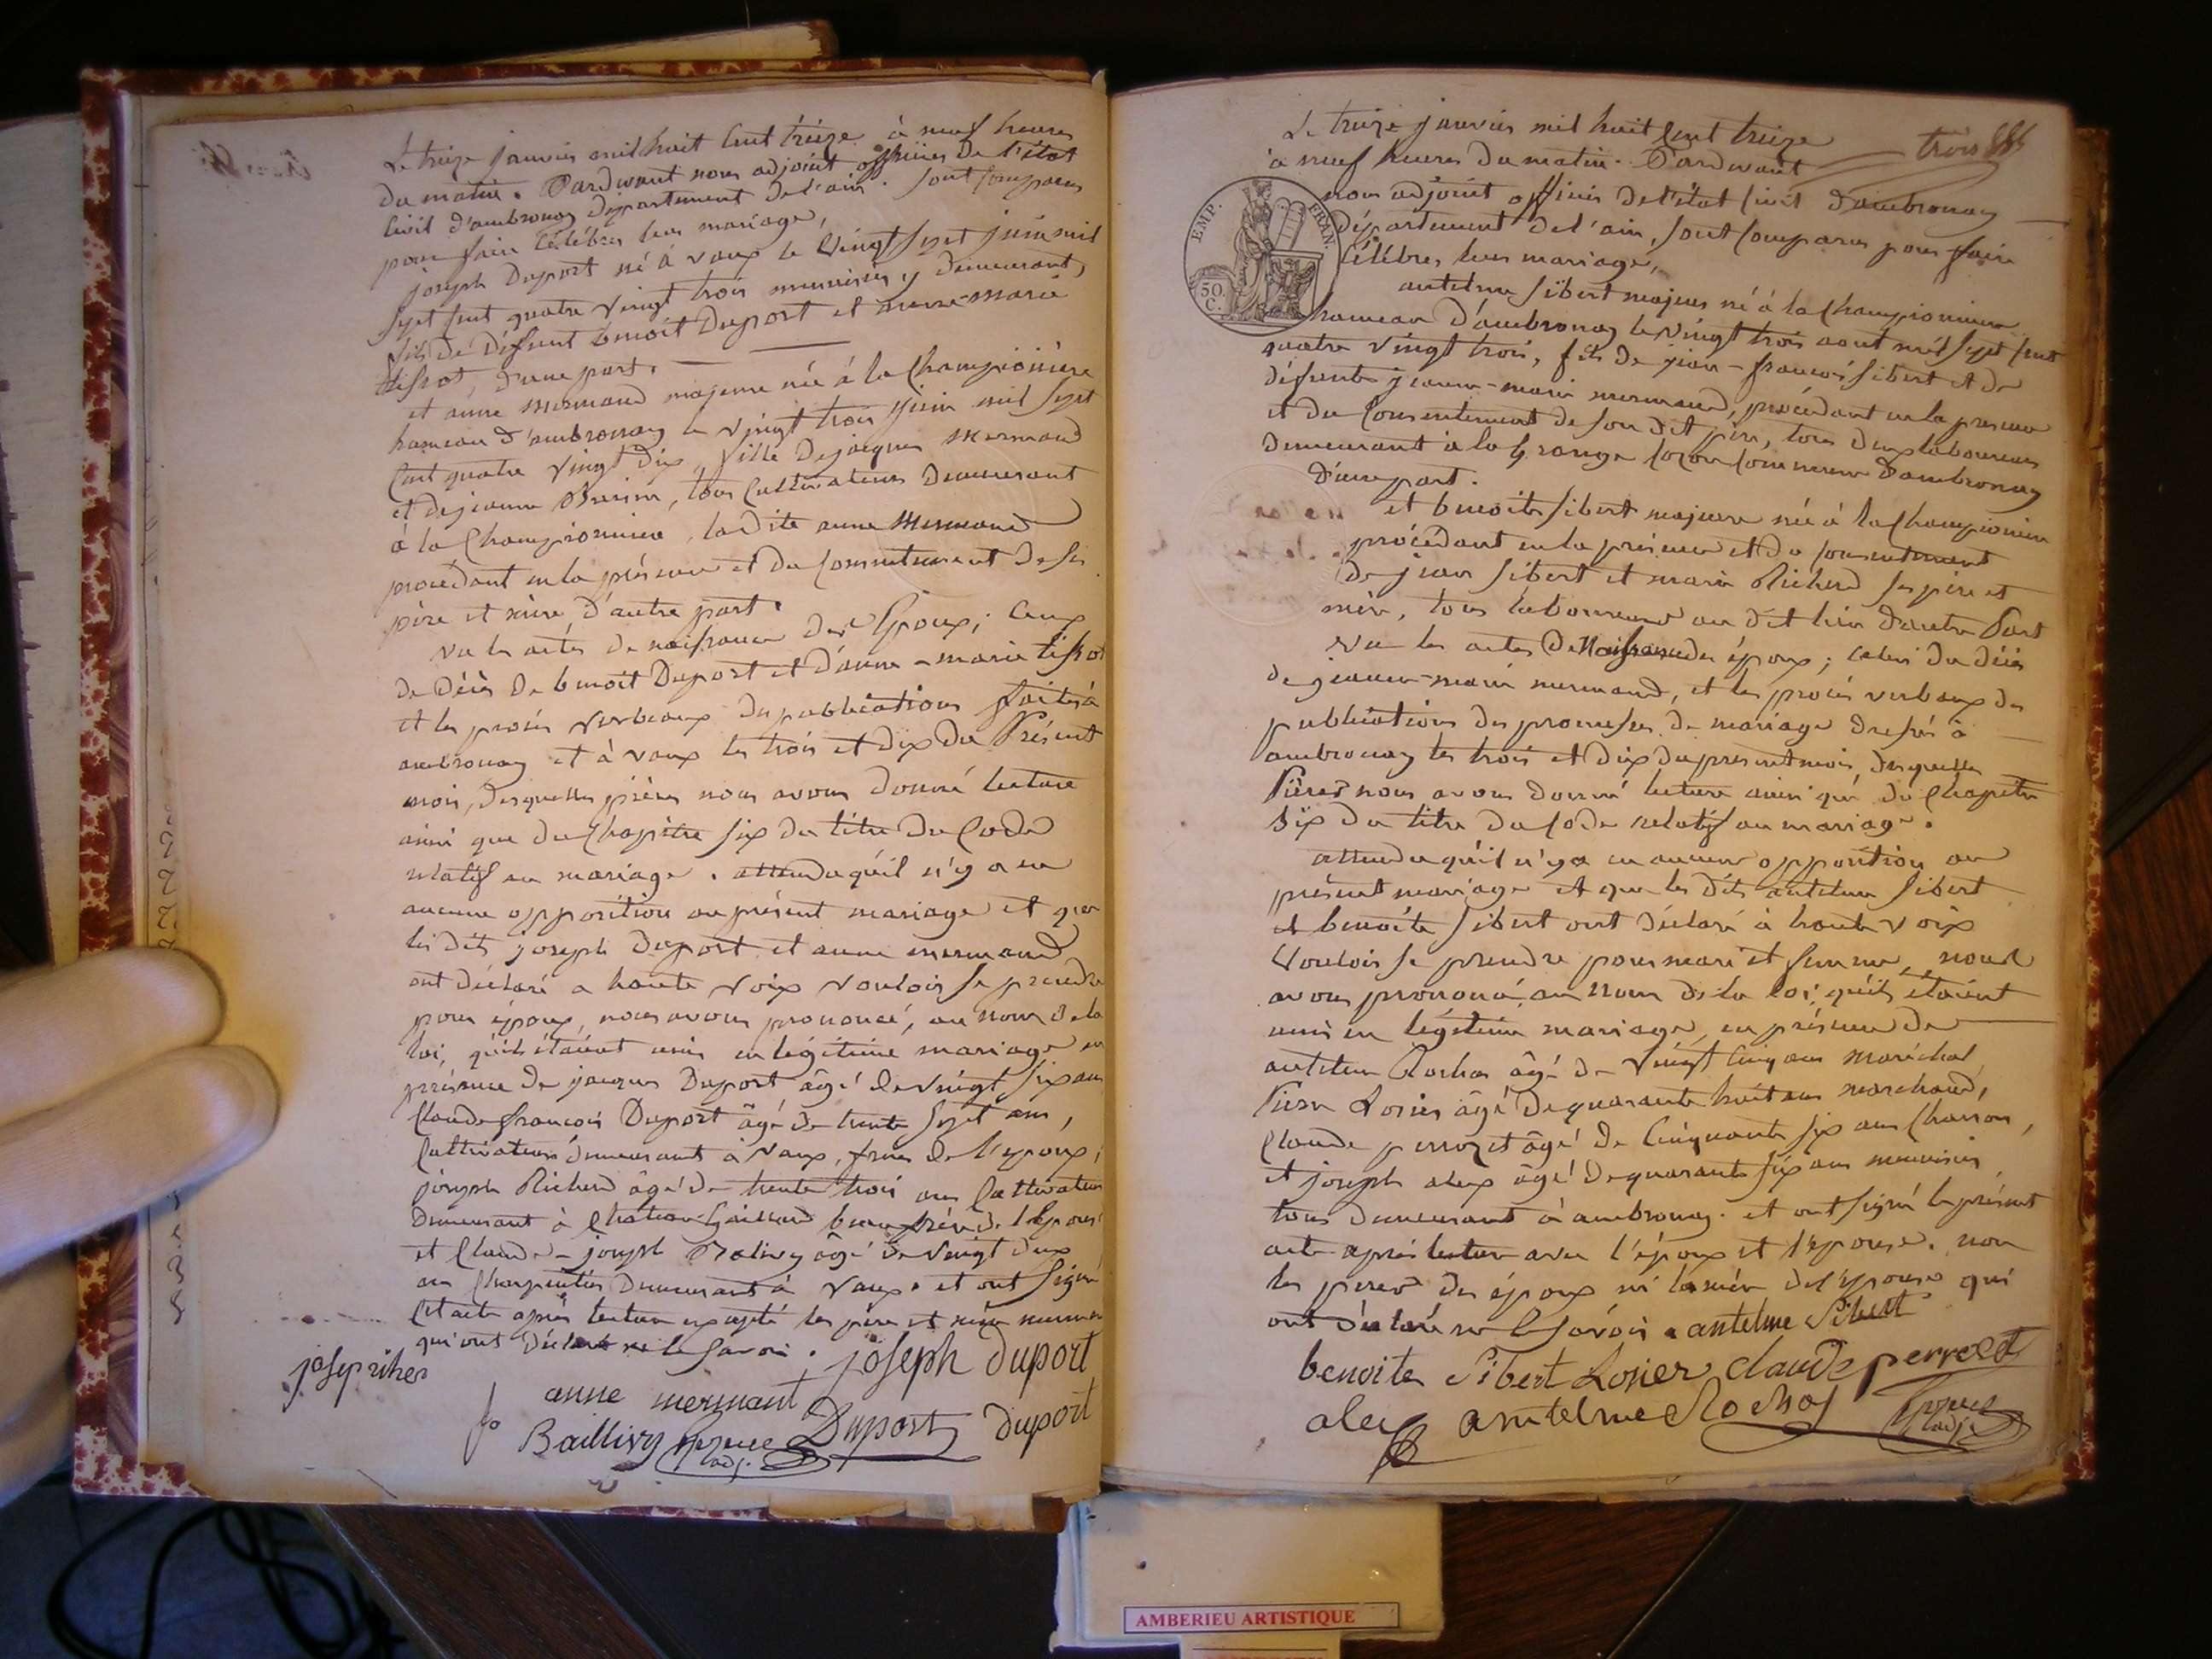 Le treize janvier mil huit cent treize à neuf heures
du matin. Pardevant nous adjoint officier de l'état
civil d'ambronay département de l'ain. sont comparus
pour faire célébrer leur mariage,
joseph Duport né à vaux le vingt sept juin mil
sept cent quatre vingt trois menuisier y demeurant,
fils de défunt benoit Duport et anne-marie
tissot, d'une part.
et anne mermand majeure née à la championière
hameau d'ambronay le vingt trois juin mil sept
cent quatre vingt dix, fille de jacques mermand
et de jeanne, tous cultivateurs demeurant
à la championnière, la dite anne mermand
procédant en la présence et du consentement de ses
père et mère, d'autre part.
vu les actes de naissance des époux; ceux
de décès de benoit Duport et d'anne-marie tissot
et les procès verbeaux des publications faites à
ambronay et à vaux les trois et dix du Présent
mois, desquelles pièces nous avons donné lecture
ainsi que du chapitre six du titre du code
relatif au mariage. attendu qu'il n'y a eu
aucune opposition au présent mariage et que
les dits joseph Duport et anne mermand
ont déclaré a haute voix vouloir se prendre
pour époux, nous avons prononcé, au nom de la
loi, qu'ils étaient unis en légitime mariage en
présence de jacques Duport âgé de vingt six ans
claude françois Duport âgé de trente sept ans,
cultivateurs demeurant à vaux, frères de l'époux;
joseph Richerd âgé de trente trois ans cultivateur
demeurant à chateau-gaillard beau frère de l'épouse
et claude-joseph Balivy âgé de vingt deux
ans charpentier demeurant à vaux. et ont signé
cet acte après lecture excepté les père et mère mermand
qui ont déclaré ne le savoir. joseph duport
josep riher
anne mermant
Baillivy Dupost duport
adj.
Le treize janvier mil huit cent treize
trois
à neuf heures du matin. Pardevant
nous adjoint officier de l'état civil d'ambronay
EMP. FRAN.
50 C.
département de l'ain, sont comparus pour faire
célébrer leur mariage,
antelme sibert majeur né à la championniere
hameau d'ambronay le vingt trois aout mil sept cent
quatre vingt trois, fils de jean-françois sibert et de
défunte jeanne-marie mermand, procédant en la presence
et du consentement de son dit père, tous deux laboureurs
demeurant à la grange commune d'ambronay
d'une part.
et benoite sibert majeure née à la championniere
procédant en la présence et du consentement
de jean sibert et marie Richerd ses père et
mère, tous laboureurs au dit lieu d'autre Part
vu les actes de Naissance des époux; celui du décès
de jeanne-marie mermand, et les procès verbaux des
publications des promesses de mariage dressés à
ambronay les trois et dix du present mois, desquelles
Pièces nous avons donné lecture ainsi que du chapitre
six du titre du code relatif au mariage.
attendu qu'il n'y a eu aucune opposition au
présent mariage et que les dits antelme sibert
et benoite sibert ont déclaré à haute voix
vouloir se prendre pour mari et femme, nous
avons prononcé, au nom de la loi, qu'ils étaient
unis en légitime mariage, en présence de
antelme Rochas âgé de vingt cinq ans maréchal,
Pierre Losier âgé de quarante huit ans marchand,
claude perrozet âgé de cinquante six ans charron,
et joseph aleux âgé de quarante six ans menuisier
tous demeurant à ambronay. et ont signé le présent
acte après lecture avec l'époux et l'épouse. non
les peres des époux ni la mère de l'épouse qui
ont déclaré ne le savoir. antelme sibert
benoite sibert Losier claude perrozet
aleux antelme Rochas
adj.
AMBERIEU ARTISTIQUE